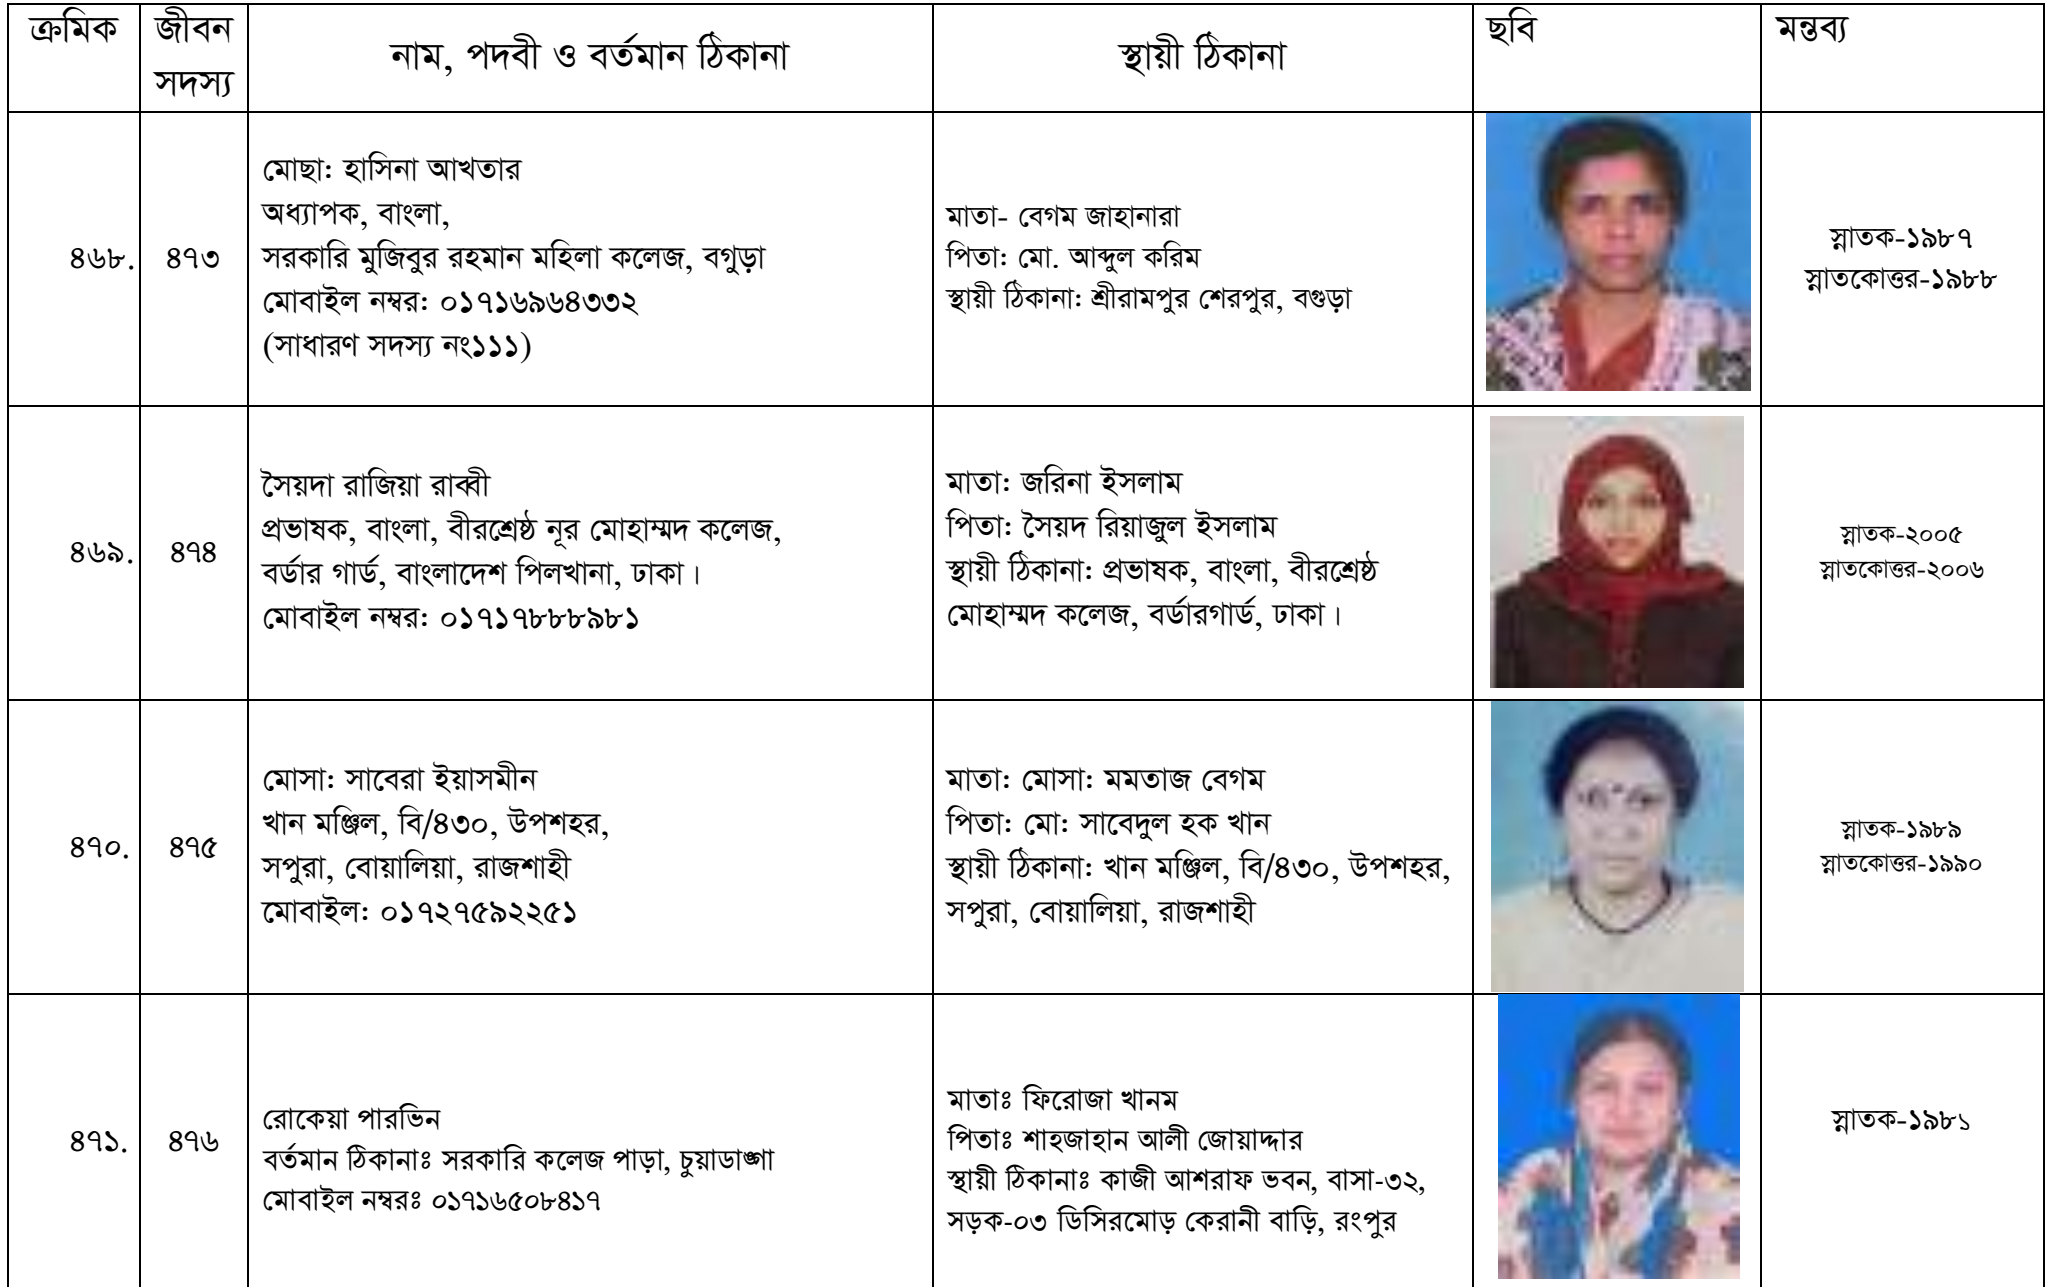 ক্রমিক
জীবন
সদস্য
নাম, পদবী ও বর্তমান ঠিকানা
স্থায়ী ঠিকানা
ছবি
মন্তব্য
৪৬৮.
৪৭৩
মোছা: হাসিনা আখতার
অধ্যাপক, বাংলা,
সরকারি মুজিবুর রহমান মহিলা কলেজ, বগুড়া
মোবাইল নম্বর: ০১৭১৬৯৬৪৩৩২
(সাধারণ সদস্য নং১১১)
মাতা- বেগম জাহানারা
পিতা: মো. আব্দুল করিম
স্থায়ী ঠিকানা: শ্রীরামপুর শেরপুর, বগুড়া
স্নাতক-১৯৮৭
স্নাতকোত্তর-১৯৮৮
৪৬৯.
৪৭৪
সৈয়দা রাজিয়া রাব্বী
প্রভাষক, বাংলা, বীরশ্রেষ্ঠ নূর মোহাম্মদ কলেজ,
বর্ডার গার্ড, বাংলাদেশ পিলখানা, ঢাকা।
মোবাইল নম্বর: ০১৭১৭৮৮৮৯৮১
মাতা: জরিনা ইসলাম
পিতা: সৈয়দ রিয়াজুল ইসলাম
স্থায়ী ঠিকানা: প্রভাষক, বাংলা, বীরশ্রেষ্ঠ
মোহাম্মদ কলেজ, বর্ডারগার্ড, ঢাকা।
স্নাতক-২০০৫
স্নাতকোত্তর-২০০৬
৪৭০.
৪৭৫
মোসা: সাবেরা ইয়াসমীন
খান মঞ্জিল, বি/৪৩০, উপশহর,
সপুরা, বোয়ালিয়া, রাজশাহী
মোবাইল: ০১৭২৭৫৯২২৫১
মাতা: মোসা: মমতাজ বেগম
পিতা: মো: সাবেদুল হক খান
স্থায়ী ঠিকানা: খান মঞ্জিল, বি/৪৩০, উপশহর,
সপুরা, বোয়ালিয়া, রাজশাহী
স্নাতক-১৯৮৯
স্নাতকোত্তর-১৯৯০
৪৭১.
৪৭৬
রোকেয়া পারভিন
বর্তমান ঠিকানাঃ সরকারি কলেজ পাড়া, চুয়াডাঙ্গা
মোবাইল নম্বরঃ ০১৭১৬৫০৮৪১৭
মাতাঃ ফিরোজা খানম
পিতাঃ শাহজাহান আলী জোয়াদ্দার
স্থায়ী ঠিকানাঃ কাজী আশরাফ ভবন, বাসা-৩২,
সড়ক-০৩ ডিসিরমোড় কেরানী বাড়ি, রংপুর
স্নাতক-১৯৮১